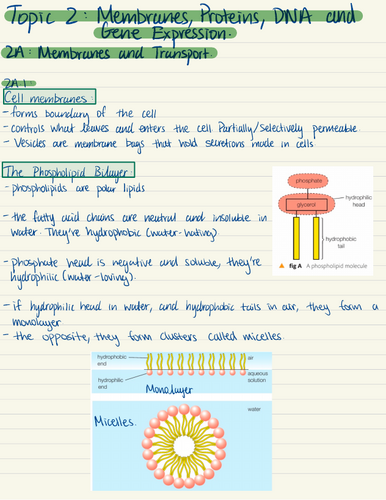 Topic 2: Membranes, Proteins, DNA and
Gene Expression.
2A: Membranes and Transport.
2A.1
Cell membranes:
- forms boundary of the cell
- controls what leaves and enters the cell Partially/Selectively permeable.
- Vesicles are membrane bags that hold secretions made in cells
The Phospholipid Bilayer
- phospholipids are polar lipids
- the fatty acid chains are neutral and insoluble in
water. They're hydrophobic (water-hating).
- phosphate head is negative and soluble, they're
hydrophilic (water-loving).
phosphate
glycerol
hydrophilic
head
hydrophobic
tail
fig A A phospholipid molecule
- if hydrophilic head in water, and hydrophobic tails in air, they form a
monolayer
- the opposite, they form clusters called micelles.
hydrophobic
end
air
hydrophilic
end
aqueous
solution
Monolayer
Micelles.
water